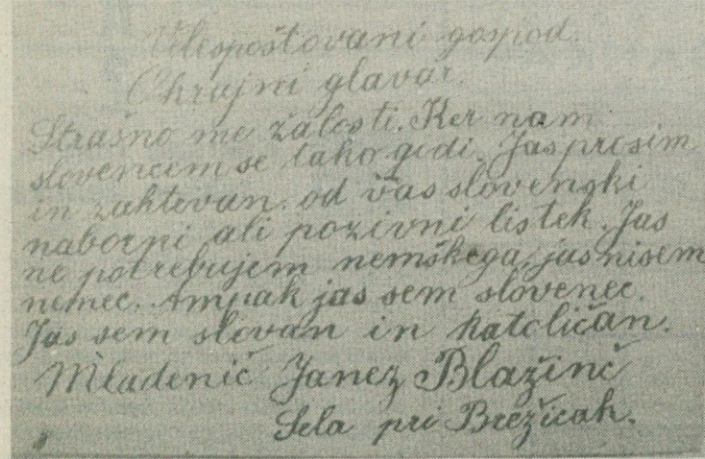 Velespoštovani gospod.
Okrajni glavar.
Strašno me žalosti. Ker nam
slovencem se tako godi. Jas prosim
in zahtevan. od vas slovenski
naborni ali pozivni listek. Jas
ne potrebujem nemškega, jas nisem
nemec. Ampak jas sem slovenec.
Jas sem slovan in katoličan.
Mladenič Janez Blažinč
Sela pri Brežicah.